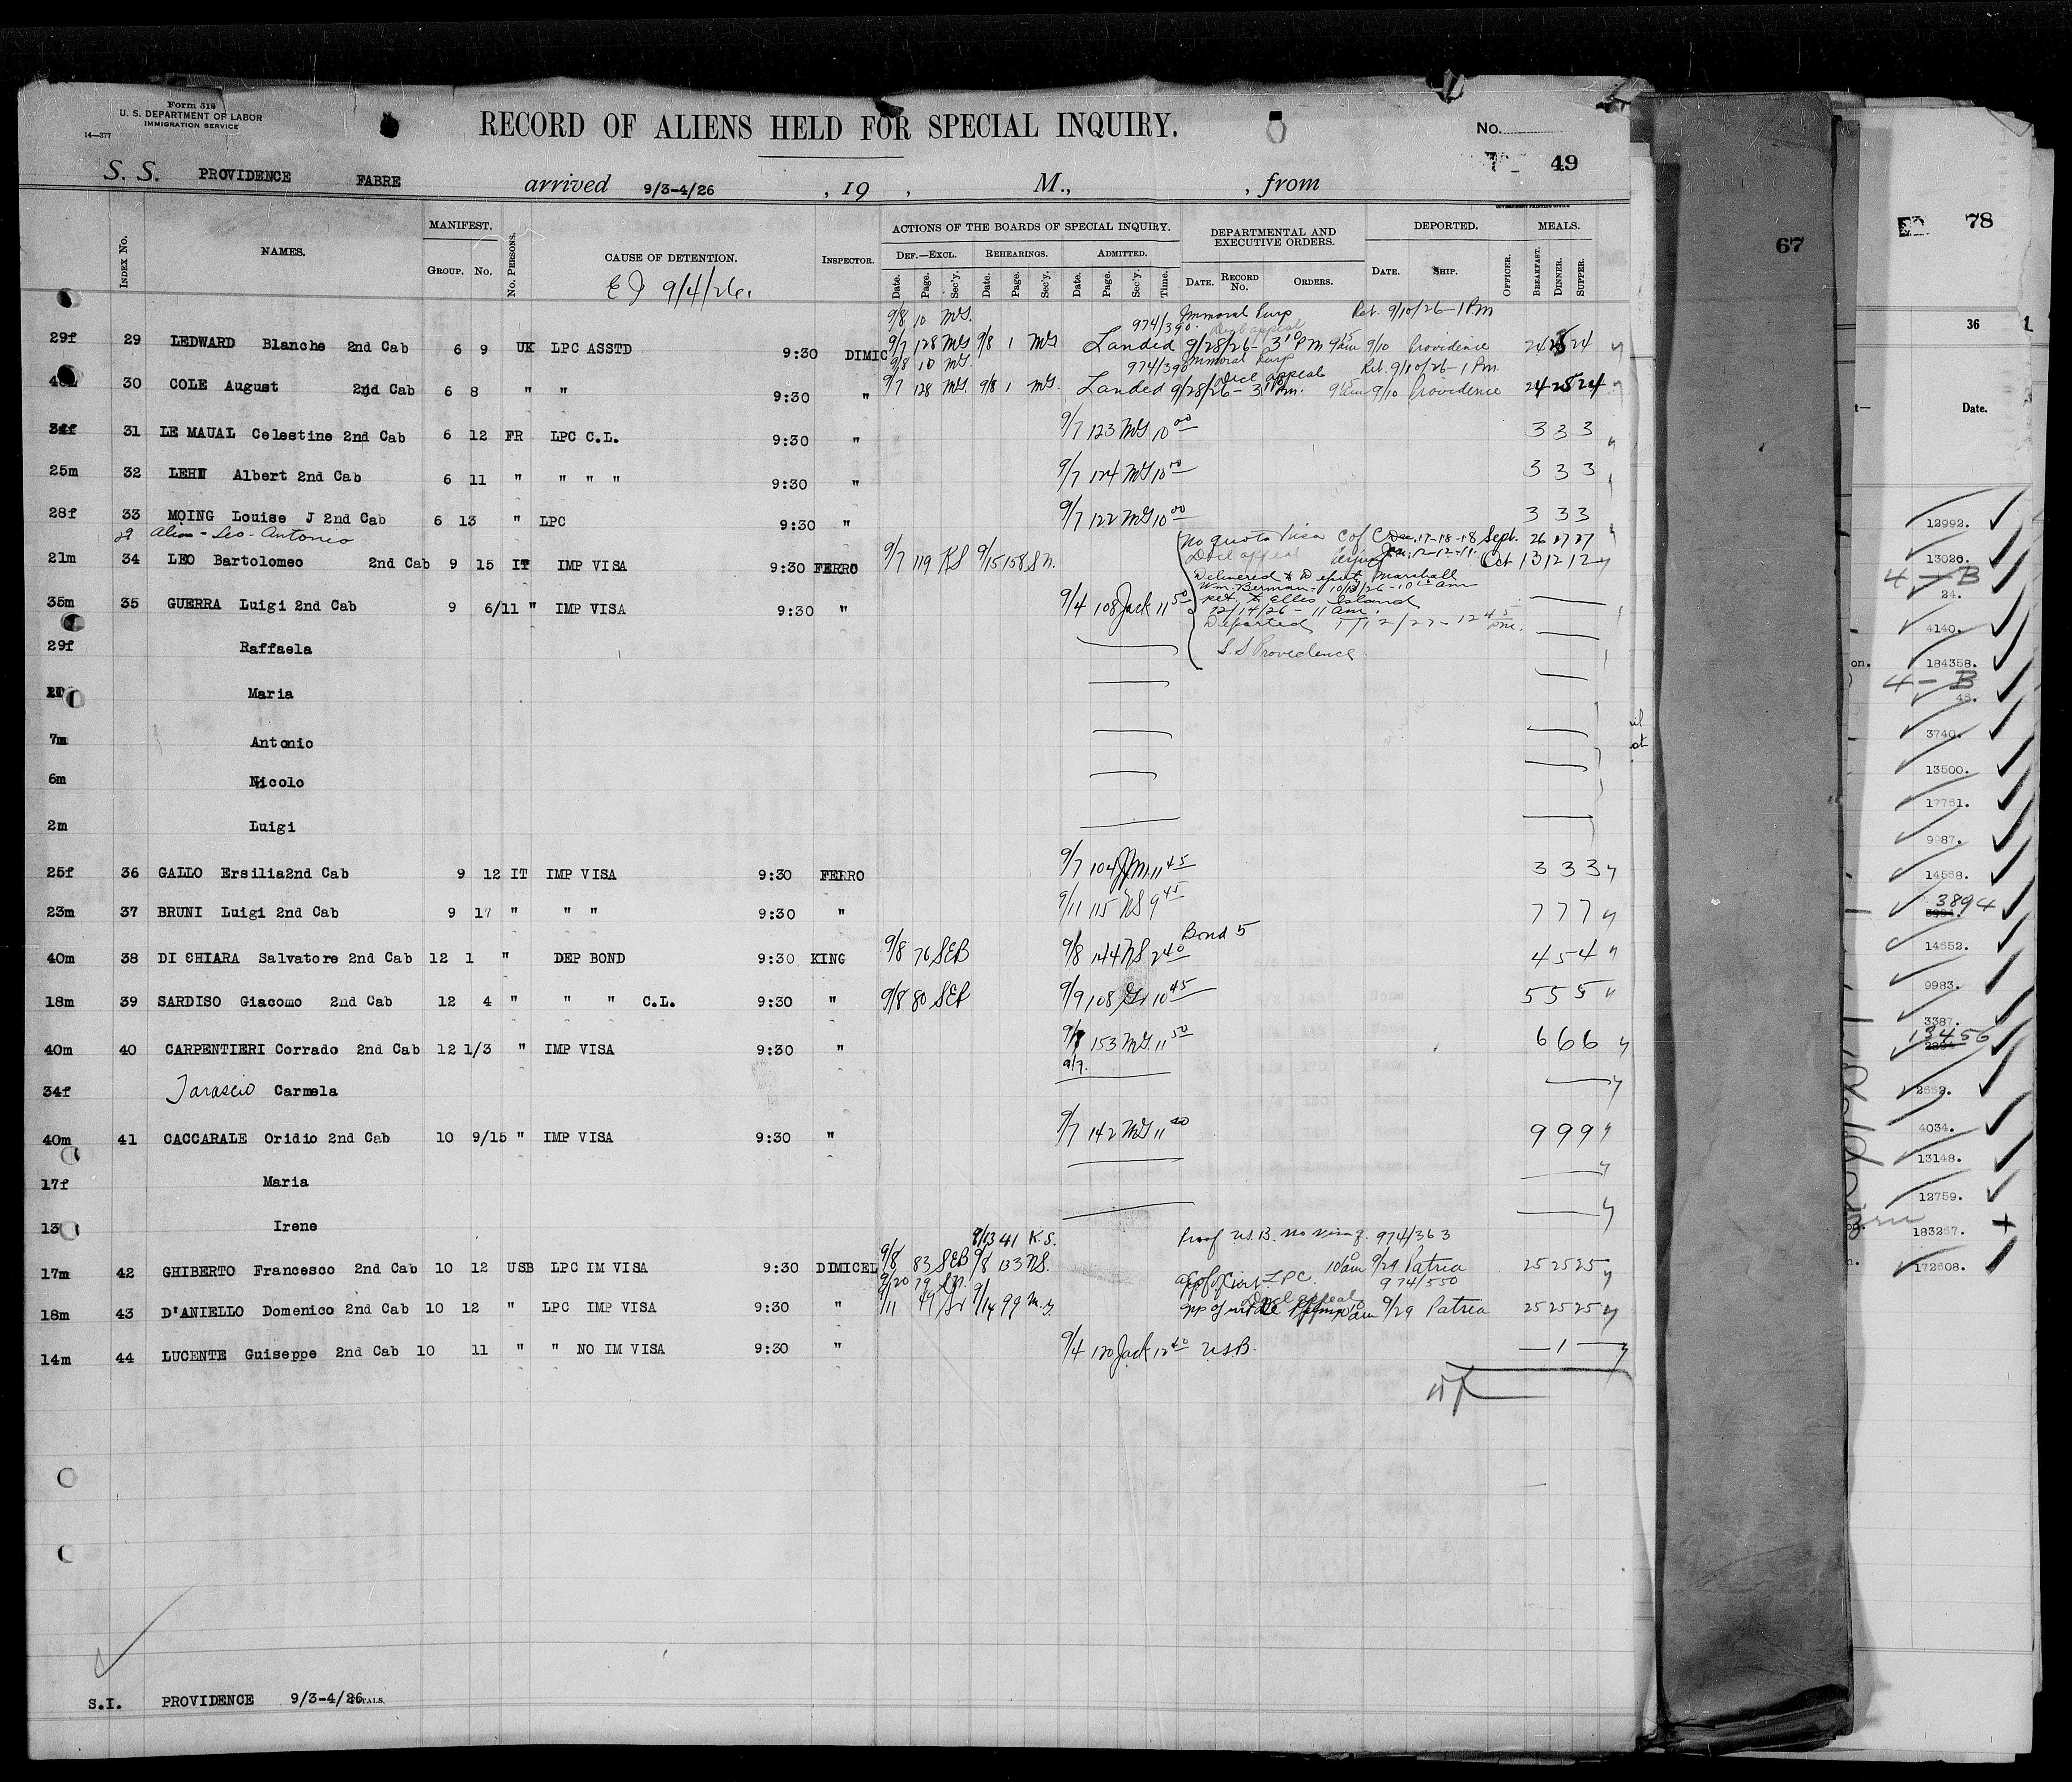 Form 318
U. S. DEPARTMENT OF LABOR
IMMIGRATION SERVICE
14—377
RECORD OF ALIENS HELD FOR SPECIAL INQUIRY.
No.
49
S. S. PROVIDENCE FABRE arrived 9/3-4/26 , 19 , M., , from
GOVERNMENT PRINTING OFFICE
INDEX No. NAMES. MANIFEST. GROUP. No. No. PERSONS. CAUSE OF DETENTION. INSPECTOR. ACTIONS OF THE BOARDS OF SPECIAL INQUIRY. DEF.—EXCL. REHEARINGS. ADMITTED. DEPARTMENTAL AND EXECUTIVE ORDERS. DEPORTED. MEALS.
Date. Page. Sec'y. Date. Page. Sec'y. Date. Page. Sec'y. Time. DATE. RECORD No. ORDERS. DATE. SHIP. OFFICER. BREAKFAST. DINNER. SUPPER.
9/4/26.
9/8 10 MG. 974/390. Immoral Purp Ret. 9/10/26-1 PM
29f 29 LEDWARD Blanche 2nd Cab 6 9 UK LPC ASSTD 9:30 DIMIC 9/7 128 MG 9/8 1 MG Landed 9/28/26- 3 10 PM 9/10 Providence 24 25 24
9/8 10 MG. 974/390 Immoral Purp Ret. 9/10/26-1 PM.
30 COLE August 2nd Cab 6 8 " " 9:30 " 9/7 128 MG. 9/8 1 MG. Landed 9/28/26- 3 10 Pm. 9/10 Providence 24 25 24
34f 31 LE MAUAL Celestine 2nd Cab 6 12 FR LPC C.L. 9:30 " 9/7 123 MG 10 00 3 3 3
25m 32 LEHN Albert 2nd Cab 6 11 " " " " 9:30 " 9/7 124 MG 10 00 3 3 3
28f 33 MOING Louise J 2nd Cab 6 13 " LPC 9:30 " 9/7 122 MG 10 00 3 3 3
alias - Leo - Antonio
No quota Visa C of C Dec. 17-18-18 Sept. 26 27 27
21m 34 LEO Bartolomeo 2nd Cab 9 15 IT IMP VISA 9:30 FERRO 9/7 119 KS 9/15 158 Jan. 12-12-11. Oct 13 12 12
Delivered to Deput. Marshall
Wm. Berman - 10/13/26 - 10 15 am
35m 35 GUERRA Luigi 2nd Cab 9 6/11 " IMP VISA 9:30 " 9/4 108 Jack 11 50
ret. to Ellis Island
12/14/26 - 11 am.
Deported 12/27 - 12 45 pm.
S.S Providence
29f Raffaela
Maria
7m Antonio
6m Nicolo
2m Luigi
25f 36 GALLO Ersilia2nd Cab 9 12 IT IMP VISA 9:30 FERRO 9/7 104 11 45 3 3 3
23m 37 BRUNI Luigi 2nd Cab 9 17 " " " 9:30 " 9/11 115 NS 9 45 7 7 7
40m 38 DI CHIARA Salvatore 2nd Cab 12 1 " DEP BOND 9:30 KING 9/8 76 SEB 9/8 144 NS 2 40 Bond 5 4 5 4
18m 39 SARDISO Giacomo 2nd Cab 12 4 " " " C.L. 9:30 " 9/8 80 SEB 9/9 108 Gr 10 45 5 5 5
40m 40 CARPENTIERI Corrado 2nd Cab 12 1/3 " IMP VISA 9:30 " 153 MG. 11 50 6 6 6
9/7.
34f Tarascio Carmela
40m 41 CACCARALE Oridio 2nd Cab 10 9/15 " IMP VISA 9:30 " 9/7 142 MG 11 20 9 9 9
17f Maria
13 Irene
9/13 41 K.S. Proof U.S.B. no visa 974/363
17m 42 GHIBERTO Francesco 2nd Cab 10 12 USB LPC IM VISA 9:30 DIMICEL 9/8 83 SEB 9/8 133 NS. 10 am 9/29 Patria 25 25 25
9/20 79 LPC. 974/550
18m 43 D'ANIELLO Domenico 2nd Cab 10 12 " LPC IMP VISA 9:30 " 9/11 49 Gr 9/14 99 9/29 Patria 25 25 25
14m 44 LUCENTE Guiseppe 2nd Cab 10 11 " " NO IM VISA 9:30 " 9/4 120 Jack 12 40 USB. 1
S.I. PROVIDENCE 9/3-4/26 TOTALS.
67
78
36
Date.
12992.
13026.
4 - B
24.
4140.
on. 184358.
4 - B
3740.
13500.
17761.
9987.
14568.
3894
14652.
9983.
3387.
13456
2652.
4034.
13148.
12759.
183257.
172608.